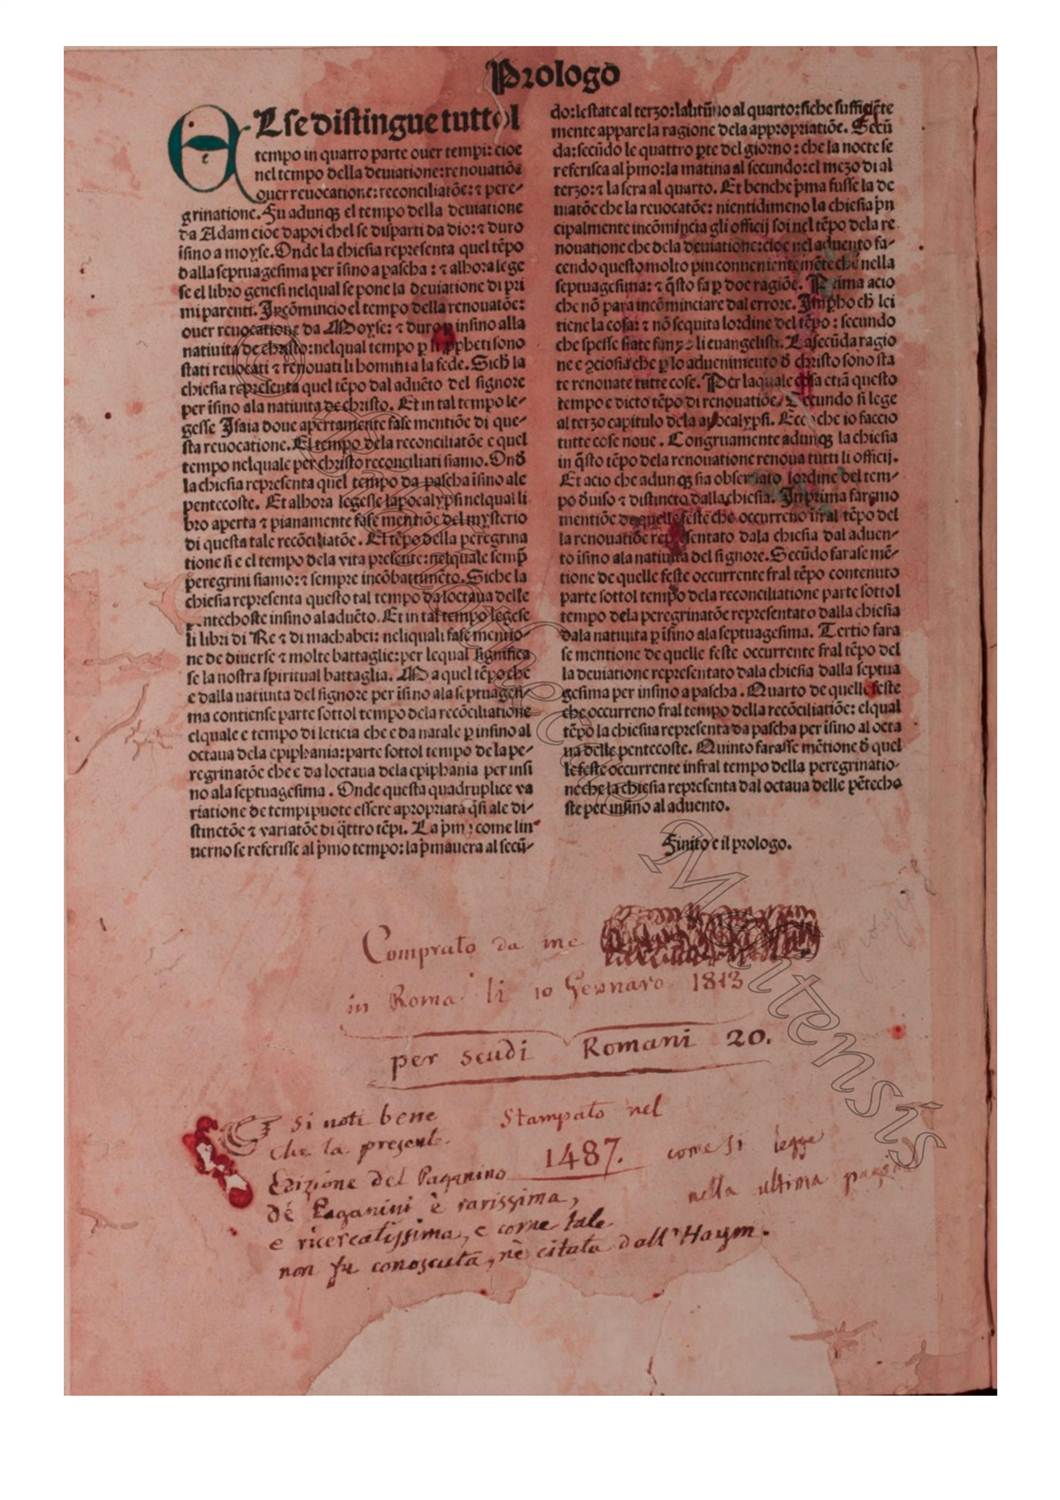 Prologo
E se distingue tutto l
tempo in quatro parte ouer tempi: cioe
nel tempo della deuiatione: renouatiõe
ouer reuocatione: reconciliatõe: ⁊ pere-
grinatione. Fu adunqʒ el tempo della deuiatione
da Adam cioe dapoi chel se disparti da dio: ⁊ duro
ĩsino a moyse. Onde la chiesia representa quel tẽpo
dalla septuagesima per ĩsino a pascha: ⁊ alhora lege
se el libro genesi nelqual se pone la deuiatione di pri
mi parenti. Incomincio el tempo della renouatõe:
ouer reuocatione da Moyse: ⁊ duro insino alla
natiuita de christo: nelqual tempo ꝑ li ꝓpheti sono
stati reuocati ⁊ renouati li homini a la fede. Sich̃ la
chiesia representa quel tẽpo dal aduẽto del signore
per ĩsino ala natiuita de christo. Et in tal tempo le-
gesse Isaia doue apertamente fase mentiõe di que-
sta reuocatione. El tempo dela reconciliatõe e quel
tempo nelquale per christo reconciliati siamo. Ond̃
la chiesia representa quel tẽpo da pascha ĩsino ale
pentecoste. Et alhora legesse lapocalypsi nelqual li
bro aperta ⁊ pianamente fase mentiõe del mysterio
di questa tale recõciliatõe. El tẽpo della peregrina
tione si e el tempo dela vita presente: nelquale semp̃
peregrini siamo: ⁊ sempre incõbattimẽto. Siche la
chiesia representa questo tal tempo da loctaua delle
pentechoste insino al aduẽto. Et in tal tempo legese
li libri di Re ⁊ di machabei: neliquali fase mentio-
ne de diuerse ⁊ molte battaglie: per lequal significa
se la nostra spiritual battaglia. Ma quel tẽpo che
e dalla natiuita del signore per ĩsino ala septuagesi-
ma contiense parte sottol tempo dela recõciliatione
elquale e tempo di leticia che e da natale ꝑ insino al
octaua dela epiphania: parte sottol tempo de la pe-
regrinatõe che e da loctaua dela epiphania per insi
no ala septuagesima. Onde questa quadruplice va
riatione de tempi puote essere apropriata q̃si ale di-
stinctõe ⁊ variatõe di q̃ttro tẽpi. La p̃ma: come lin-
uerno se referisse al p̃mo tempo: la p̃mauera al secũ-
do: lestate al terzo: lautũno al quarto: siche sufficiẽte
mente appare la ragione dela appropriatiõe. Secũ
da: secũdo le quattro ꝑte del giorno: che la nocte se
referisca al p̃mo: la matina al secundo: el mezo di al
terzo: ⁊ la sera al quarto. Et benche p̃ma fusse la de
uiatõe che la reuocatõe: nientidimeno la chiesia p̃n
cipalmente incõmincia gli officij soi nel tẽpo dela re
nouatione che dela deuiatione: cioe nel aduento fa-
cendo questo molto piu conuenientemẽte che nella
septuagesima: ⁊ q̃sto fa ꝑ doe ragiõe. Prima acio
che nõ para incõminciare dal errore. Imꝑho ch̃ lei
tiene la cosa: ⁊ nõ sequita lordine del tẽpo: secundo
che spesse fiate fano li euangelisti. La secũda ragio
ne e ꝑ lo aduenimento d̃ christo sono sta
te renouate tutte cose. Per laquale cosa etiã questo
tempo e dicto tẽpo di renouatiõe. Secundo si lege
al terzo capitulo dela apocalypsi. Ecco che io faccio
tutte cose noue. Congruamente adunqʒ la chiesia
in q̃sto tẽpo dela renouatione renoua tutti li officij.
Et acio che adunqʒ sia obseruato lordine del tem-
po d̃uiso ⁊ distincto dalla chiesia. Imprima faremo
mentiõe de quelle feste che occurreno infral tẽpo del
la renouatiõe representato dala chiesia dal aduen-
to ĩsino ala natiuita del signore. Secũdo farase mẽ-
tione de quelle feste occurrente fral tẽpo contenuto
parte sottol tempo dela reconciliatione parte sottol
tempo dela peregrinatõe representato dalla chiesia
dala natiuita ꝑ ĩsino ala septuagesima. Tertio fara
se mentione de quelle feste occurrente fral tẽpo del
la deuiatione representato dala chiesia dalla septua
gesima per insino a pascha. Quarto de quelle feste
che occurreno fral tempo della recõciliatiõe: elqual
tẽpo la chiesia representa da pascha per ĩsino al octa
ua delle pentecoste. Quinto farasse mẽtione d̃ quel
le feste occurrente infral tempo della peregrinatio-
ne che la chiesia representa dal octaua delle pẽtecho
ste per insino al aduento.
Finito e il prologo.
Comprato da me
in Roma li 10 Gennaro 1813
per scudi Romani 20.
Si noti bene
che la presente
Edizione del Paganino
de Paganini è rarissima,
e ricercatissima, e come tale
non fu conosciuta, nè citata dall' Haym.
Stampato nel
1487. come si legge
nella ultima pagina
Matritensis